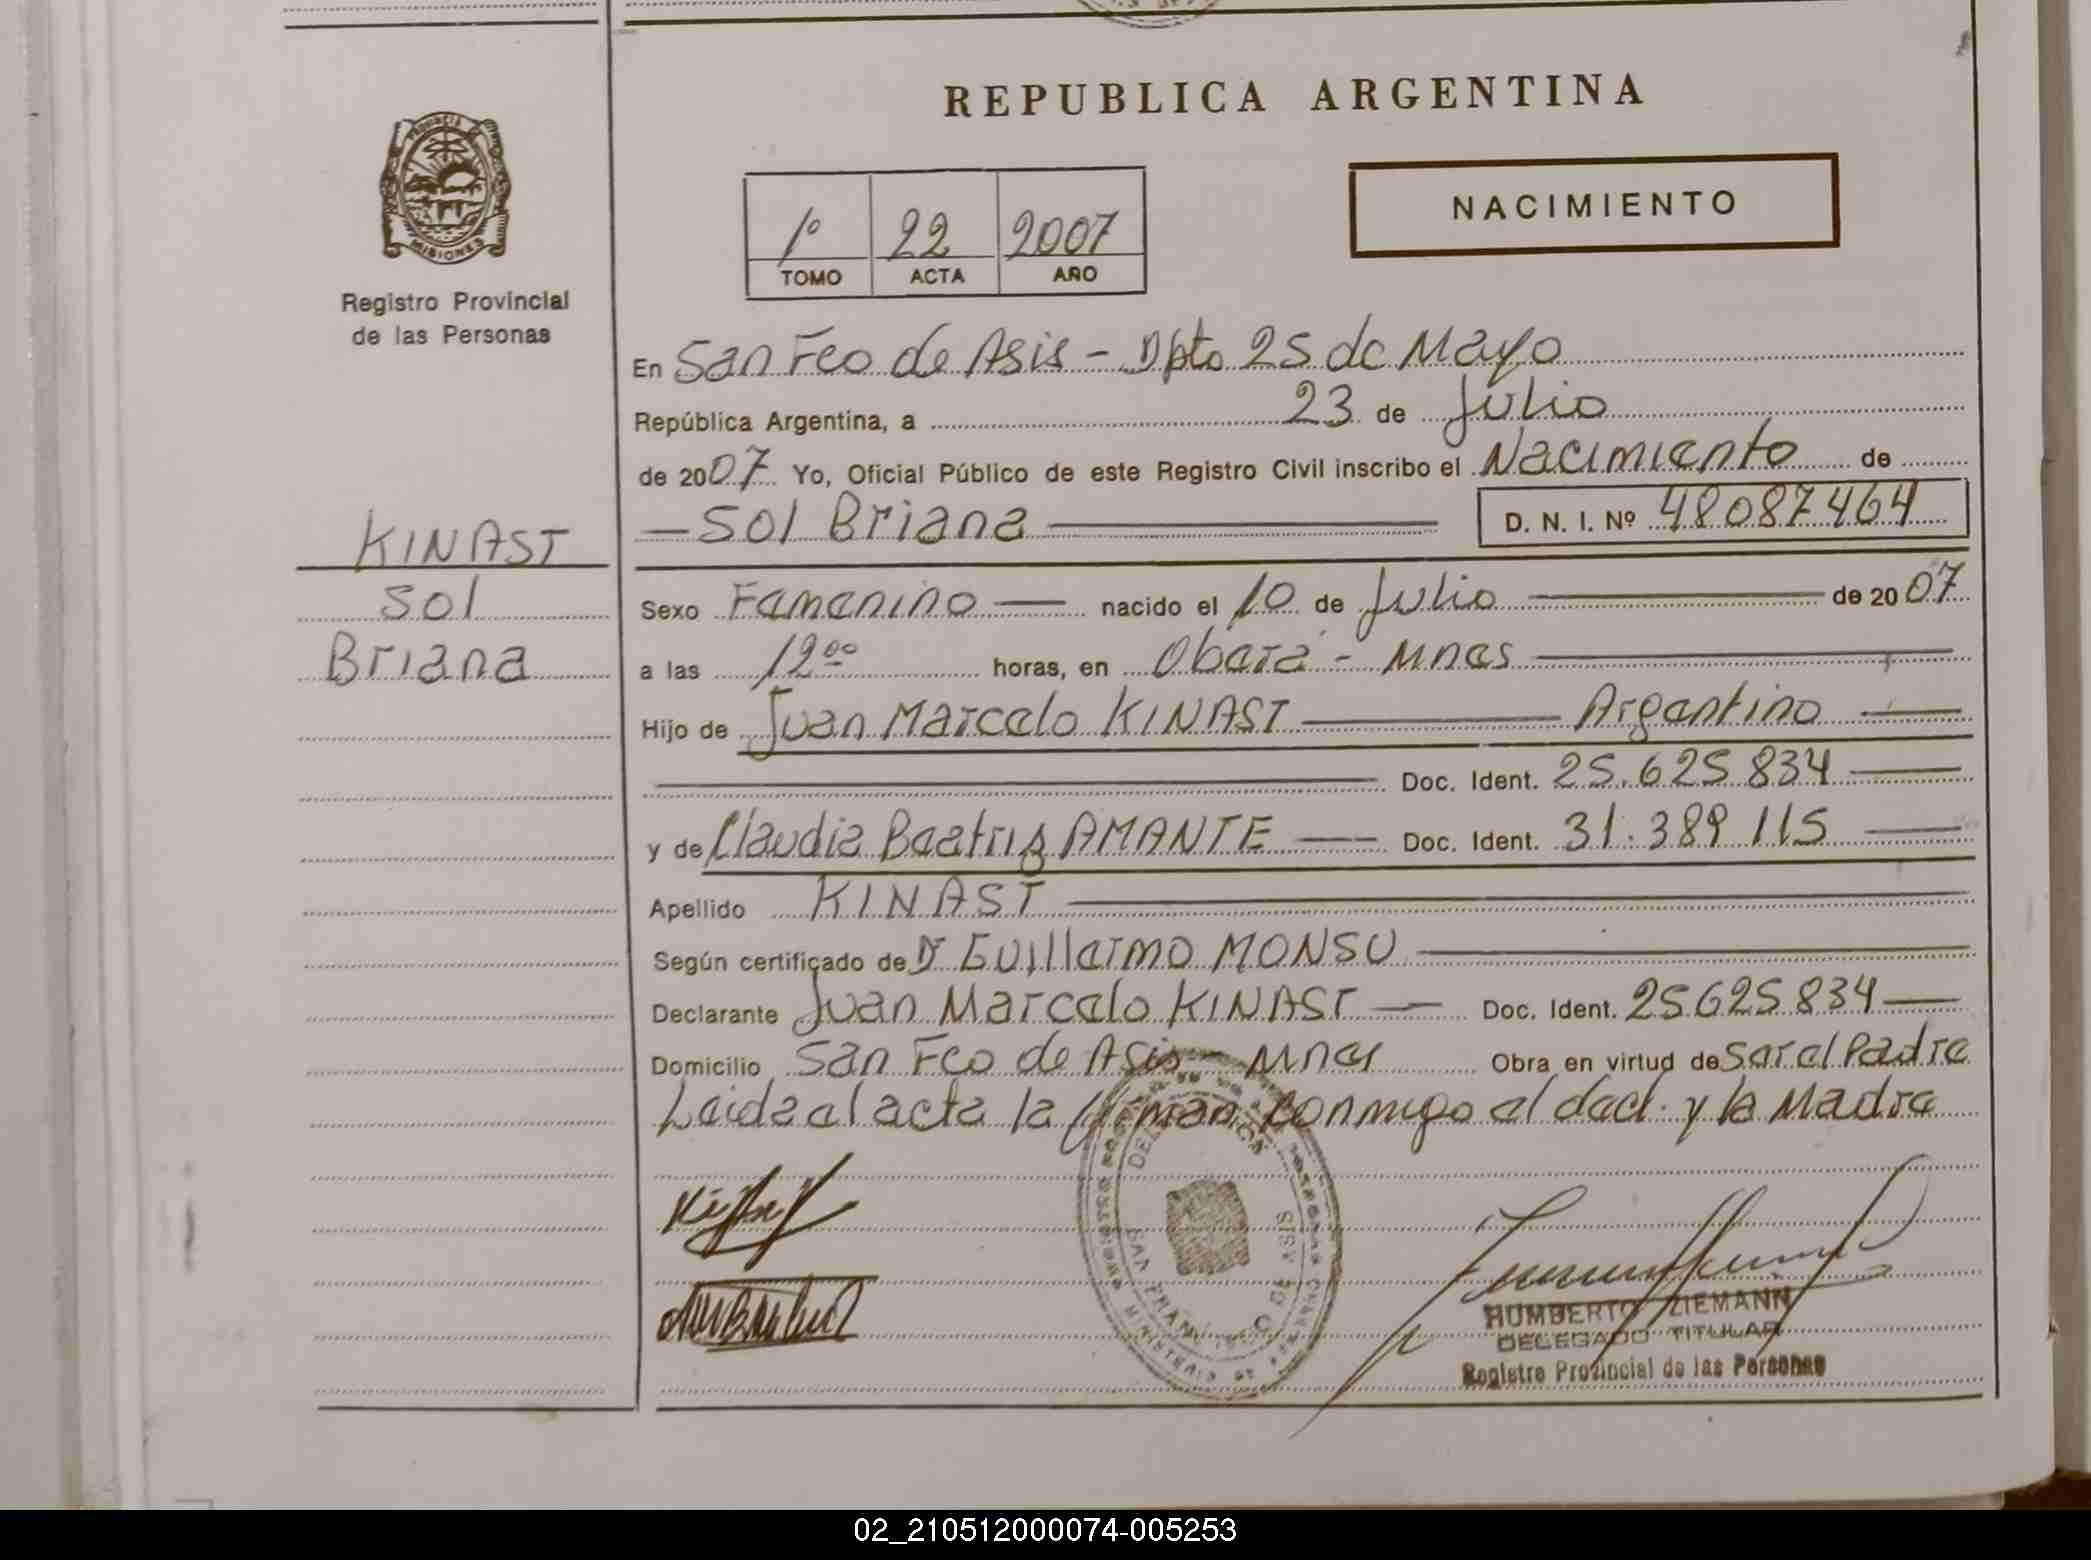 REPUBLICA ARGENTINA
PROVINCIA
MISIONES
Registro Provincial
de las Personas
1º 22 2007
TOMO ACTA AÑO
NACIMIENTO
En San Fco de Asis - Dpto 25 de Mayo
República Argentina, a 23 de Julio
de 2007 Yo, Oficial Público de este Registro Civil inscribo el Nacimiento de
Sol Briana D. N. I. Nº 48087464
KINAST
Sol
Briana
Sexo Femenino nacido el 10 de Julio de 2007
a las 12 00 horas, en Oberá - Mnes
Hijo de Juan Marcelo KINAST Argentino
Doc. Ident. 25.625.834
y de Claudia Beatriz AMANTE Doc. Ident. 31.389.115
Apellido KINAST
Según certificado de Dr Guillermo MONSU
Declarante Juan Marcelo KINAST Doc. Ident. 25625.834
Domicilio San Fco de Asis - Mnes Obra en virtud de Ser el Padre
Leida el acta la firman conmigo el decl. y la Madre
SAN FRANCISCO DE ASIS
HUMBERTO ZIEMANN
DELEGADO TITULAR
Registro Provincial de las Personas
02_210512000074-005253